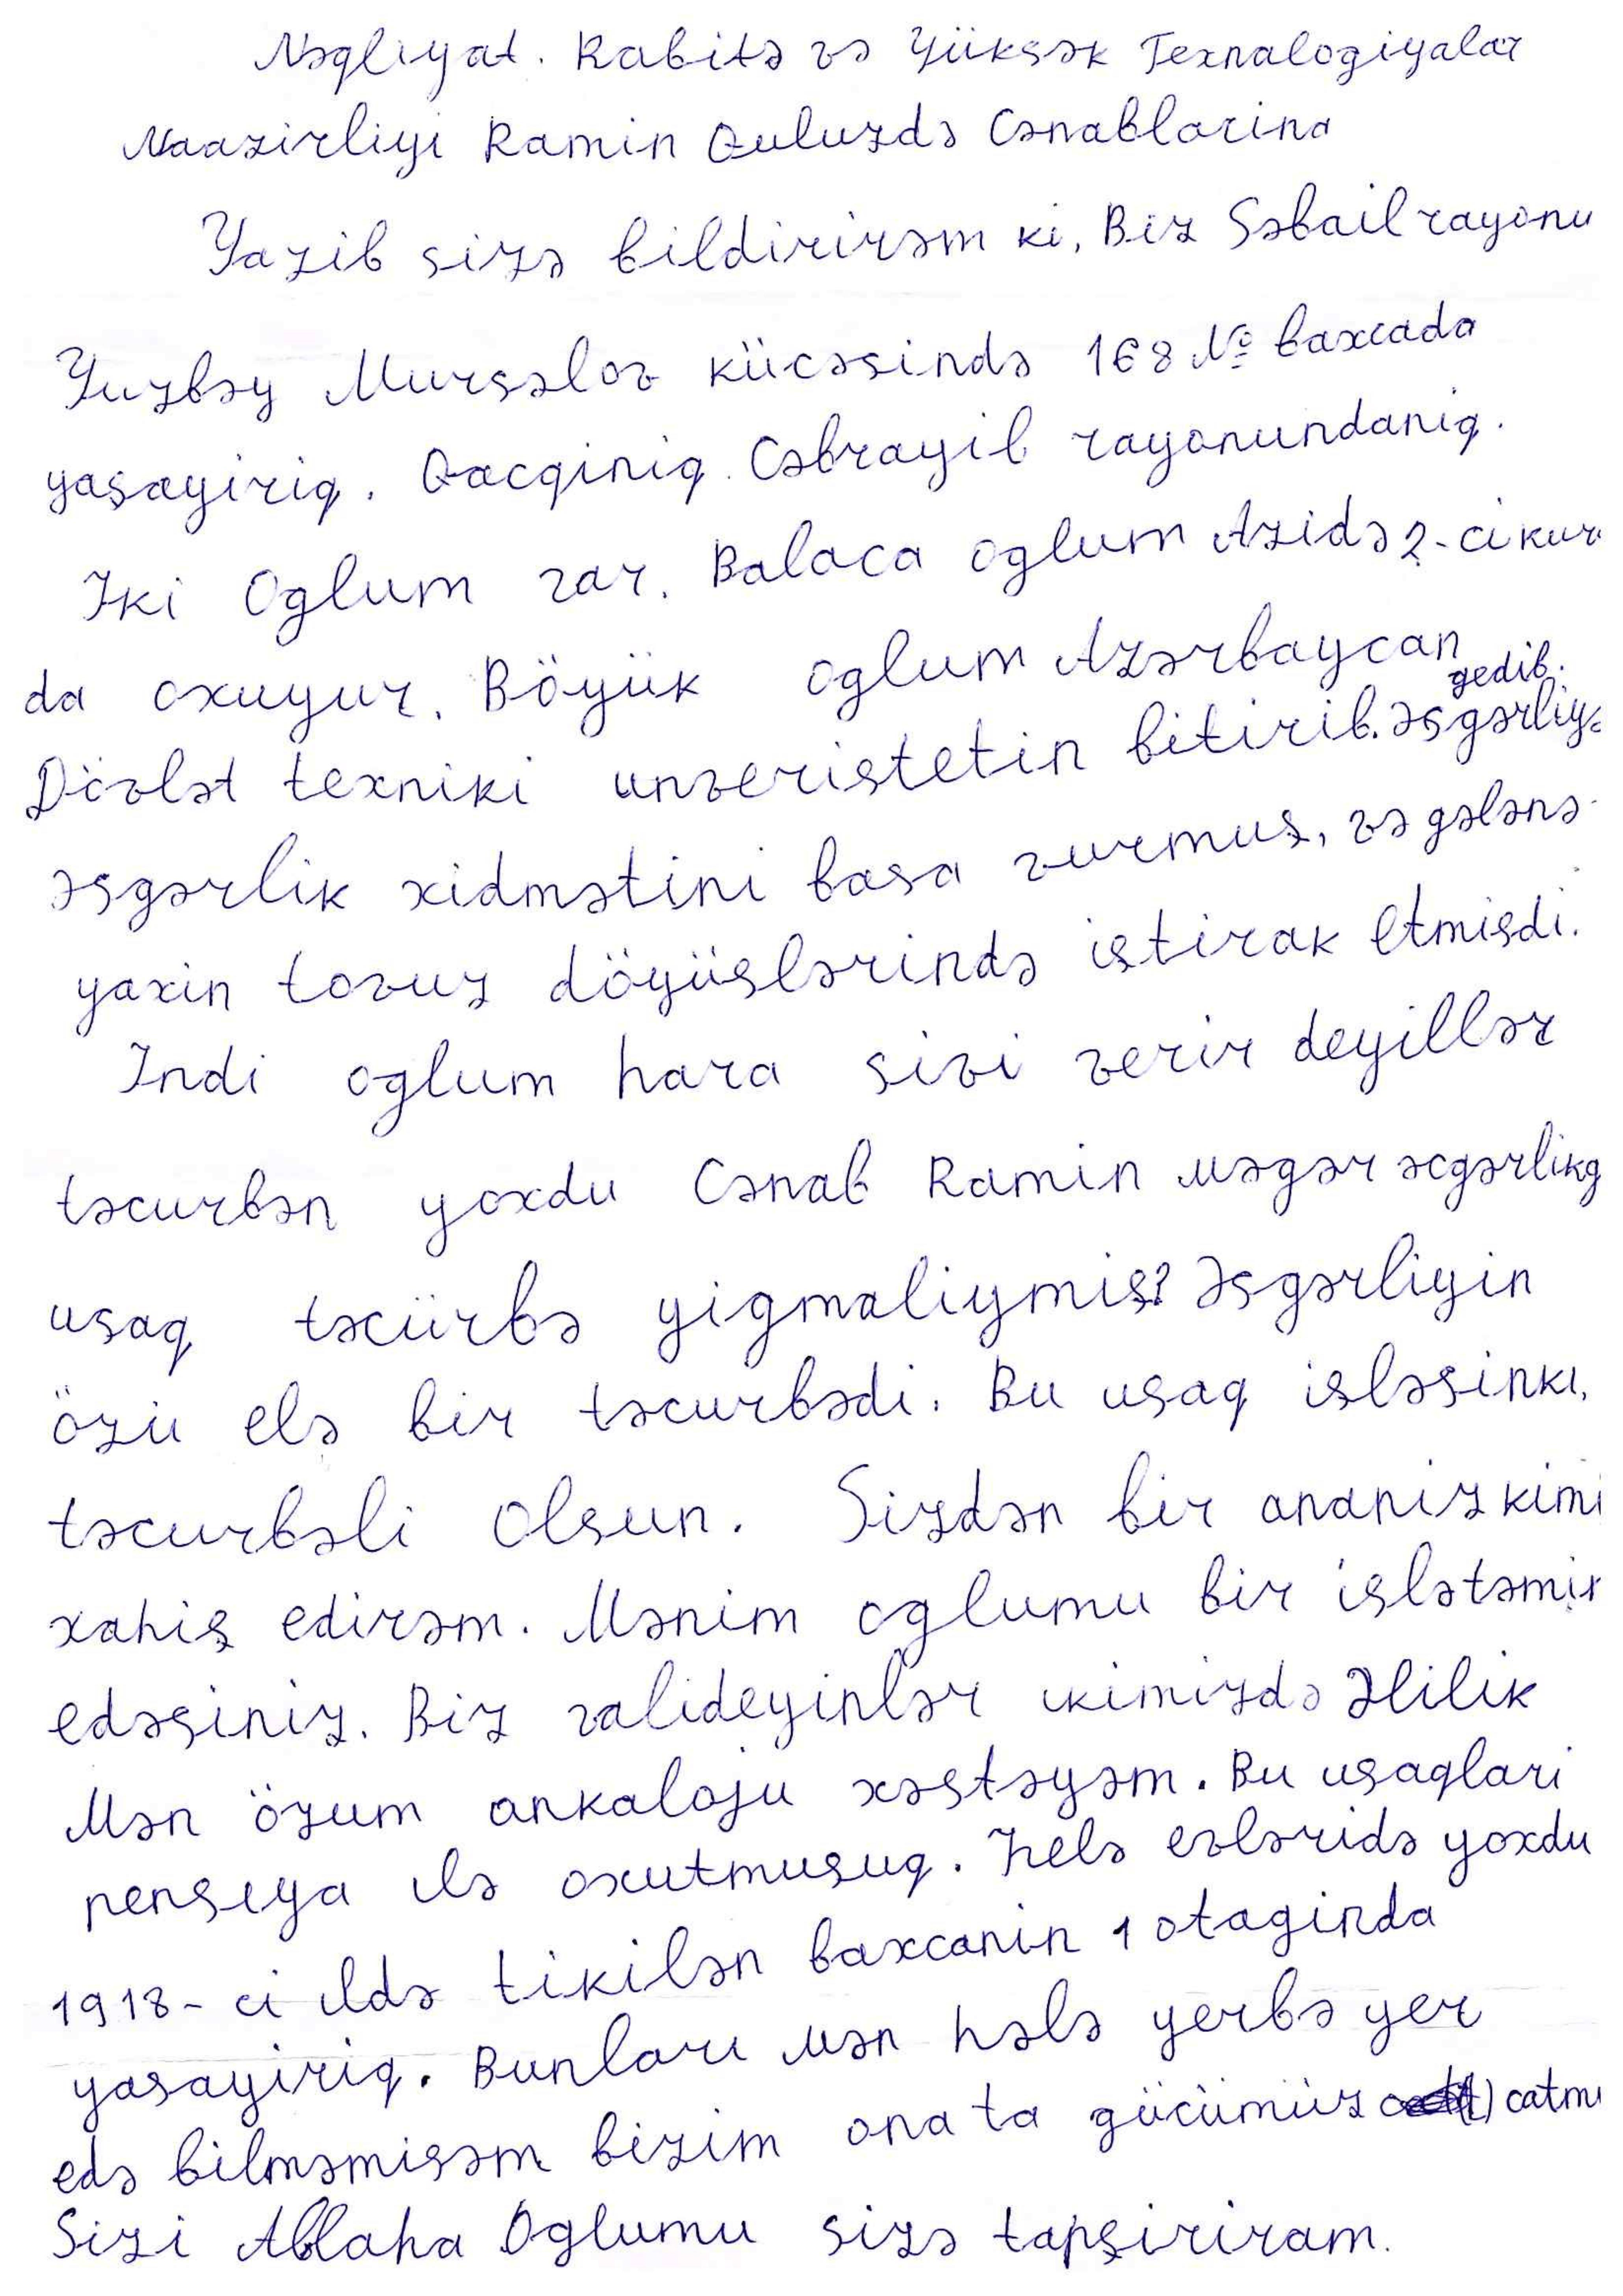 Nəqliyat. Rabitə və Yüksək Texnalogiyalar
Naazirliyi Ramin Quluzdə Cənablarina
Yazib sizə bildirirəm ki, Biz Səbail rayonu
Yuzbəy Murşəlov kücəsində 168 № baxcada
yaşayiriq. Qacqiniq. Cəbrayil rayonundaniq.
Iki Oglum var. Balaca oglum Azidə 2-ci kur
da oxuyur. Böyük oglum Azərbaycan
gedib.
Dövlət texniki unveristetin bitirib. əsgərliyə
əsgərlik xidmətini basa vurmuş, və gələnə
yaxin tovuz döyüşlərində iştirak etmişdi.
Indi oglum hara sivi verir deyillər
təcurbən yoxdu Cənab Ramin məgər əcgərlikg
uşaq təcürbə yigmaliymiş? Əsgərliyin
özü elə bir təcurbədi. Bu uşaq işləsinki,
təcurbəli Olsun. Sizdən bir ananiz kimi
xahiş edirəm. Mənim oglumu bir işlətəmin
edəsiniz. Biz valideyinlər ikimizdə Əlilik
Mən özum ankaloju xəstəyəm. Bu uşaqlari
pensiya ilə oxutmuşuq. Helə evləridə yoxdu
1918-ci ildə tikilən baxcanin 1 otaginda
yaşayiriq. Bunları mən hələ yerbə yer
edə bilməmişəm bizim ona ta gücümüz catmı
Sizi Allaha Oglumu sizə tapşiriram.